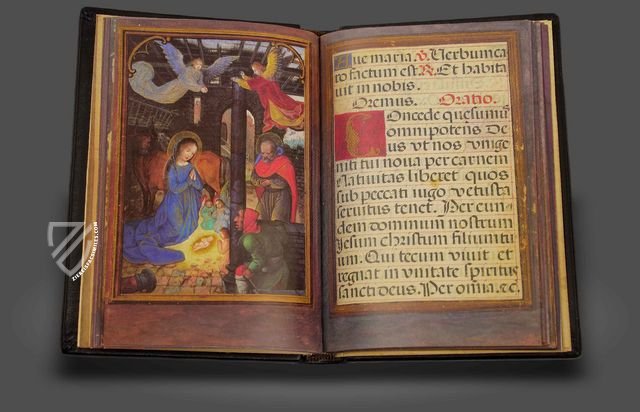 Aue maria ℣. Uerbum ca
ro factum est ℟. Et habita
uit in nobis.
Oremus. Oratio.
Concede quesumus
omnipotens De
us vt nos vnige
niti tui noua per carnem
Natiuitas liberet quos
sub peccati iugo vetusta
seruitus tenet. Per eun
dem dominum nostrum
Jesum christum filium tu
um. Qui tecum viuit et
regnat in vnitate spiritus
sancti deus. Per omnia. ec.
ZIEREISFACSIMILES.COM